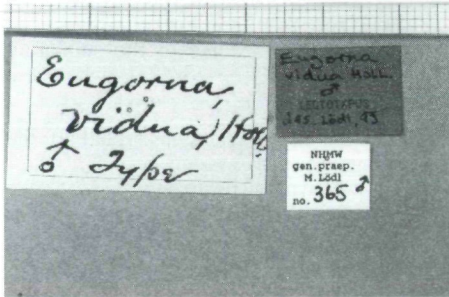 Eugorna,
vidua, Holl.
♂ Type
Eugorna
vidua Holl.
♂
LECTOTYPUS
des. Lödl, 93
NHMW
gen.praep.
M.Lödl
no. 365 ♂